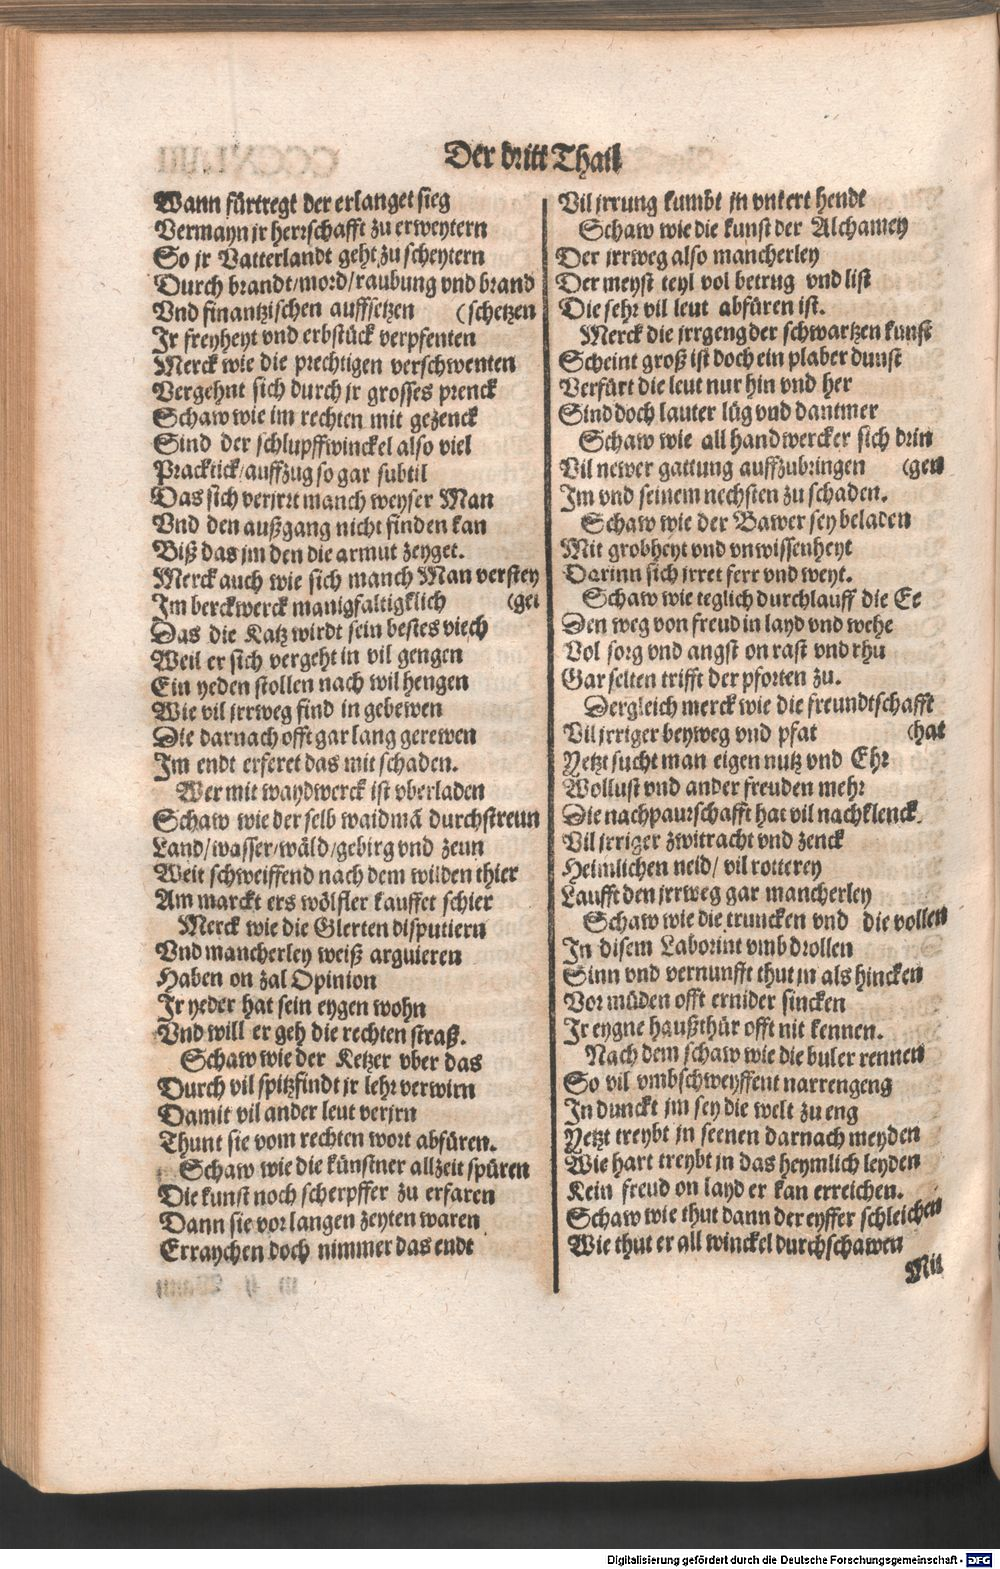 Der dritt Thail
Wann fürtregt der erlanget sieg
Vermayn jr herrschafft zu erweytern
So jr Vatterlandt geht zu scheytern
Durch brandt/mord/raubung vnd brand
Vnd finantzischen auffsetzen (schetzen
Jr freyheyt vnd erbstück verpfenten
Merck wie die prechtigen verschwenten
Vergehnt sich durch jr grosses prenck
Schaw wie im rechten mit gezenck
Sind der schlupffwinckel also viel
Pracktick/auffzug so gar subtil
Das sich verjrrt manch weyser Man
Vnd den außgang nicht finden kan
Biß das jm den die armut zeyget.
Merck auch wie sich manch Man verstey
Im berckwerck manigfaltigklich (get
Das die Katz wirdt sein bestes viech
Weil er sich vergeht in vil gengen
Ein yeden stollen nach wil hengen
Wie vil jrrweg find in gebewen
Die darnach offt gar lang gerewen
Im endt erferet das mit schaden.
Wer mit waydwerck ist vberladen
Schaw wie der selb waidmā durchstreun
Land/wasser/wäld/gebirg vnd zeun
Weit schweiffend nach dem wilden thier
Am marckt ers wölfler kauffet schier
Merck wie die Glerten disputiern
Vnd mancherley weiß arguieren
Haben on zal Opinion
Jr yeder hat sein eygen wohn
Vnd will er geh die rechten straß.
Schaw wie der Ketzer vber das
Durch vil spitzfindt jr lehr verwirn
Damit vil ander leut verjrn
Thunt sie vom rechten wort abfüren.
Schaw wie die künstner allzeit spüren
Die kunst noch scherpffer zu erfaren
Dann sie vor langen zeyten waren
Erraychen doch nimmer das endt
Vil jrrung kumbt jn vntert hendt
Schaw wie die kunst der Alchamey
Der jrrweg also mancherley
Der meyst teyl vol betrug vnd list
Die sehr vil leut abfüren ist.
Merck die jrrgeng der schwartzen kunst
Scheint groß ist doch ein plaber dunst
Verfürt die leut nur hin vnd her
Sind doch lauter lüg vnd dantmer
Schaw wie all handwercker sich drin
Vil newer gattung auffzubringen (gen
Im vnd seinem nechsten zu schaden.
Schaw wie der Bawer sey beladen
Mit grobheyt vnd vnwissenheyt
Darinn sich jrret ferr vnd weyt.
Schaw wie teglich durchlauff die Ee
Den weg von freud in layd vnd wehe
Vol sorg vnd angst on rast vnd rhu
Gar selten trifft der pforten zu.
Dergleich merck wie die freundtschafft
Vil jrriger beyweg vnd pfat (hat
Yetzt sucht man eigen nutz vnd Ehr
Wollust vnd ander freuden mehr
Die nachpaurschafft hat vil nachklenck.
Vil jrriger zwitracht vnd zenck
Heimlichen neid/ vil rotterey
Laufft den jrrweg gar mancherley
Schaw wie die truncken vnd die vollen
In disem Laborint vmb drollen
Sinn vnd vernunfft thut jn als hincken
Vor müden offt ernider sincken
Jr eygne haußthür offt nit kennen.
Nach dem schaw wie die buler rennen
So vil vmbschweyffent narrengeng
In dunckt jm sey die welt zu eng
Yetzt treybt jn seenen darnach meyden
Wie hart treybt jn das heymlich leyden
Kein freud on layd er kan erreichen.
Schaw wie thut dann der eyffer schleichen
Wie thut er all winckel durchschawen
Mit
Digitalisierung gefördert durch die Deutsche Forschungsgemeinschaft - DFG